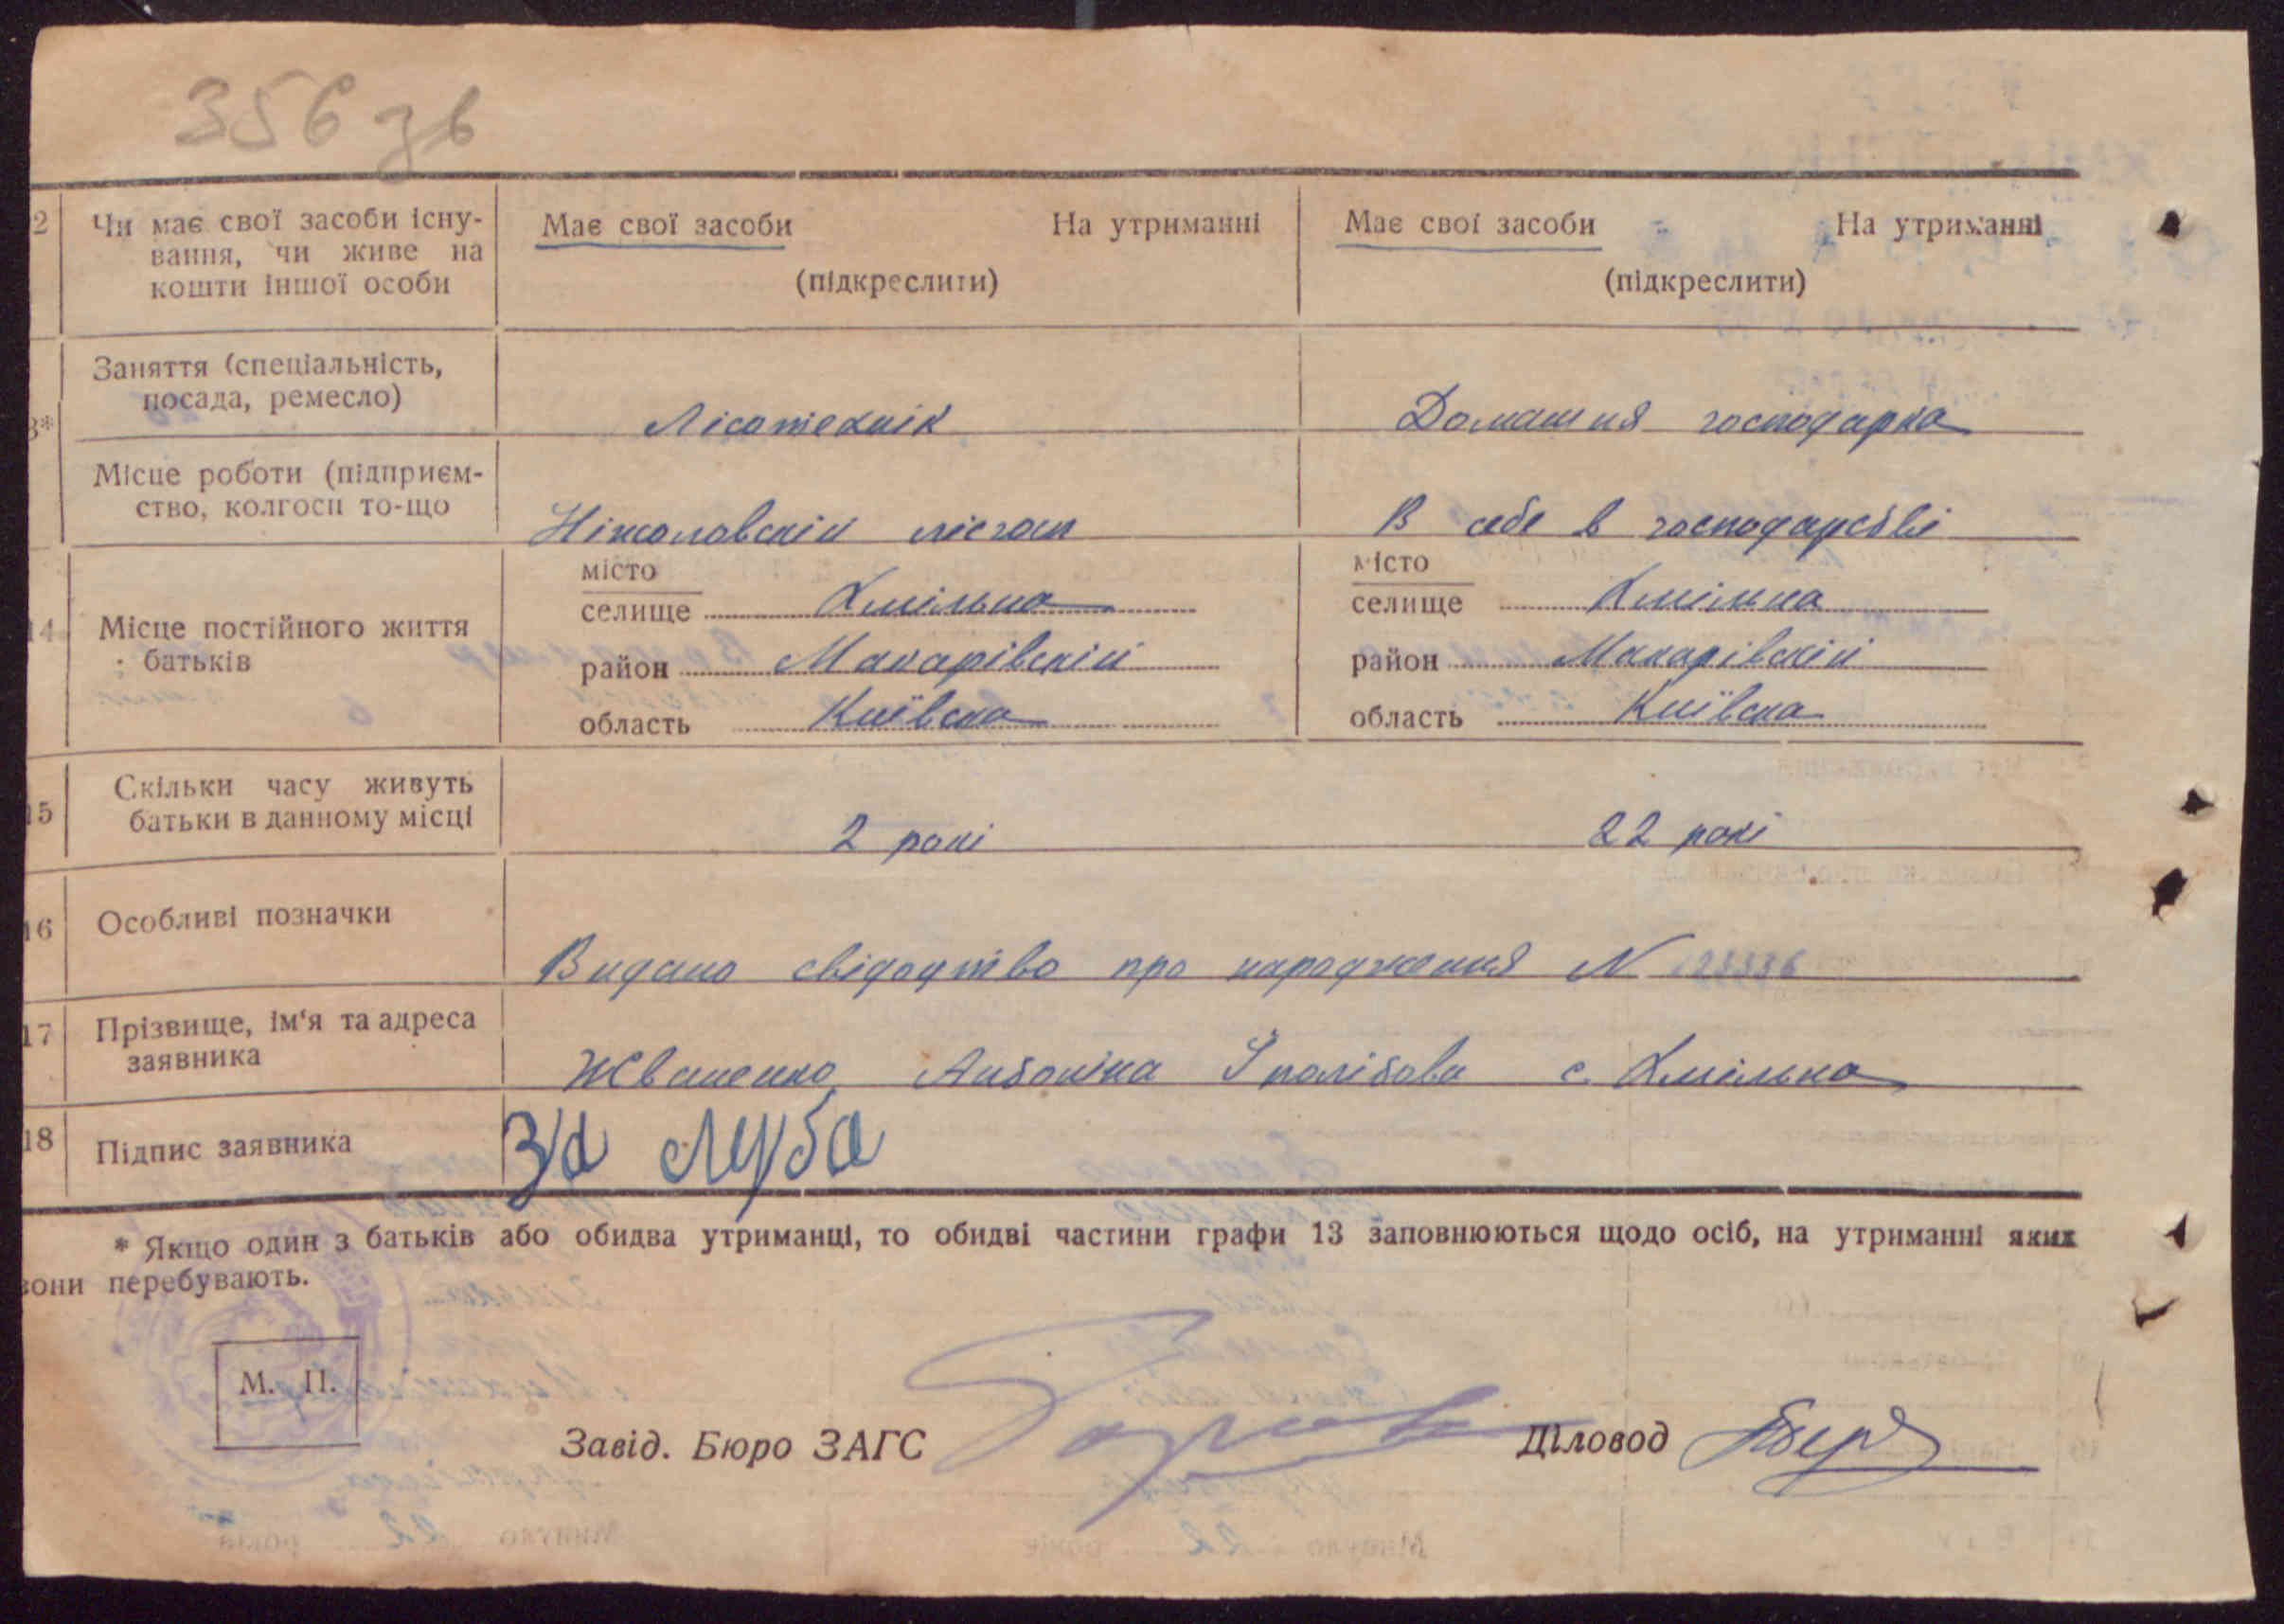 356 зв
2 Чи має свої засоби існу- Має свої засоби На утриманні Має свої засоби На утриманні
вання, чи живе на
кошти іншої особи (підкреслити) (підкреслити)
Заняття (спеціальність,
посада, ремесло) Лісотехнік Домашня господарка
3*
Місце роботи (підприєм-
ство, колгосп то-що лісгосп В себе в господарстві
14 Місце постійного життя
батьків
місто місто
селище Хмільна селище Хмільна
район Макарівскій район Макарівскій
область Київска область Київска
15 Скільки часу живуть
батьки в данному місці 2 рокі 22 рокі
16 Особливі позначки
Видано свідоцтво про народження N
17 Прізвище, ім‘я та адреса
заявника Антоніна с. Хмільна
18 Підпис заявника
* Якщо один з батьків або обидва утриманці, то обидві частини графи 13 заповнюються щодо осіб, на утриманні яких
вони перебувають.
М. П.
Завід. Бюро ЗАГС Діловод